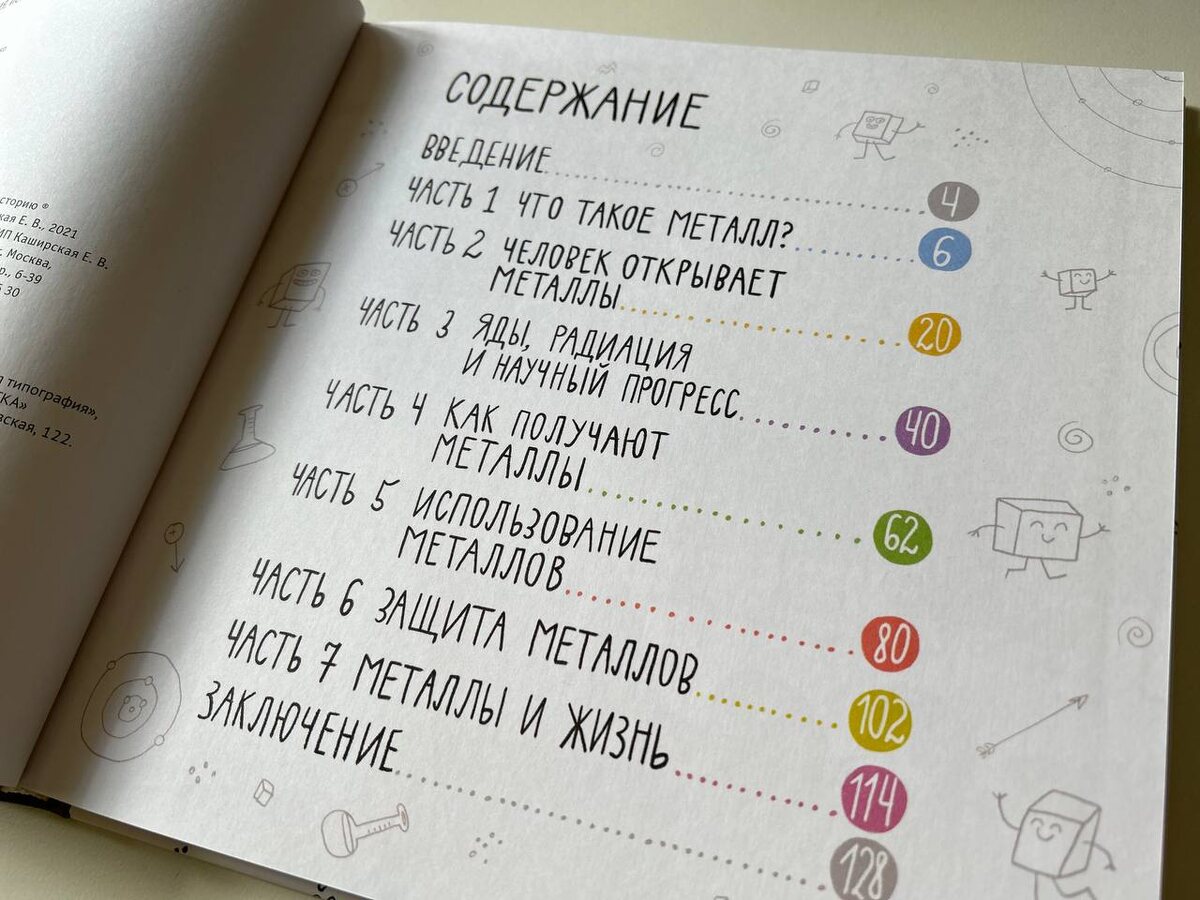 сторию ®
кая Е. В., 2021
ИП Каширская Е. В.
г. Москва,
р., 6-39
30
я типография»,
ТКА»
вская, 122.
СОДЕРЖАНИЕ
ВВЕДЕНИЕ 4
ЧАСТЬ 1 ЧТО ТАКОЕ МЕТАЛЛ? 6
ЧАСТЬ 2 ЧЕЛОВЕК ОТКРЫВАЕТ
МЕТАЛЛЫ 20
ЧАСТЬ 3 ЯДЫ, РАДИАЦИЯ
И НАУЧНЫЙ ПРОГРЕСС 40
ЧАСТЬ 4 КАК ПОЛУЧАЮТ
МЕТАЛЛЫ 62
ЧАСТЬ 5 ИСПОЛЬЗОВАНИЕ
МЕТАЛЛОВ 80
ЧАСТЬ 6 ЗАЩИТА МЕТАЛЛОВ 102
ЧАСТЬ 7 МЕТАЛЛЫ И ЖИЗНЬ 114
ЗАКЛЮЧЕНИЕ 128